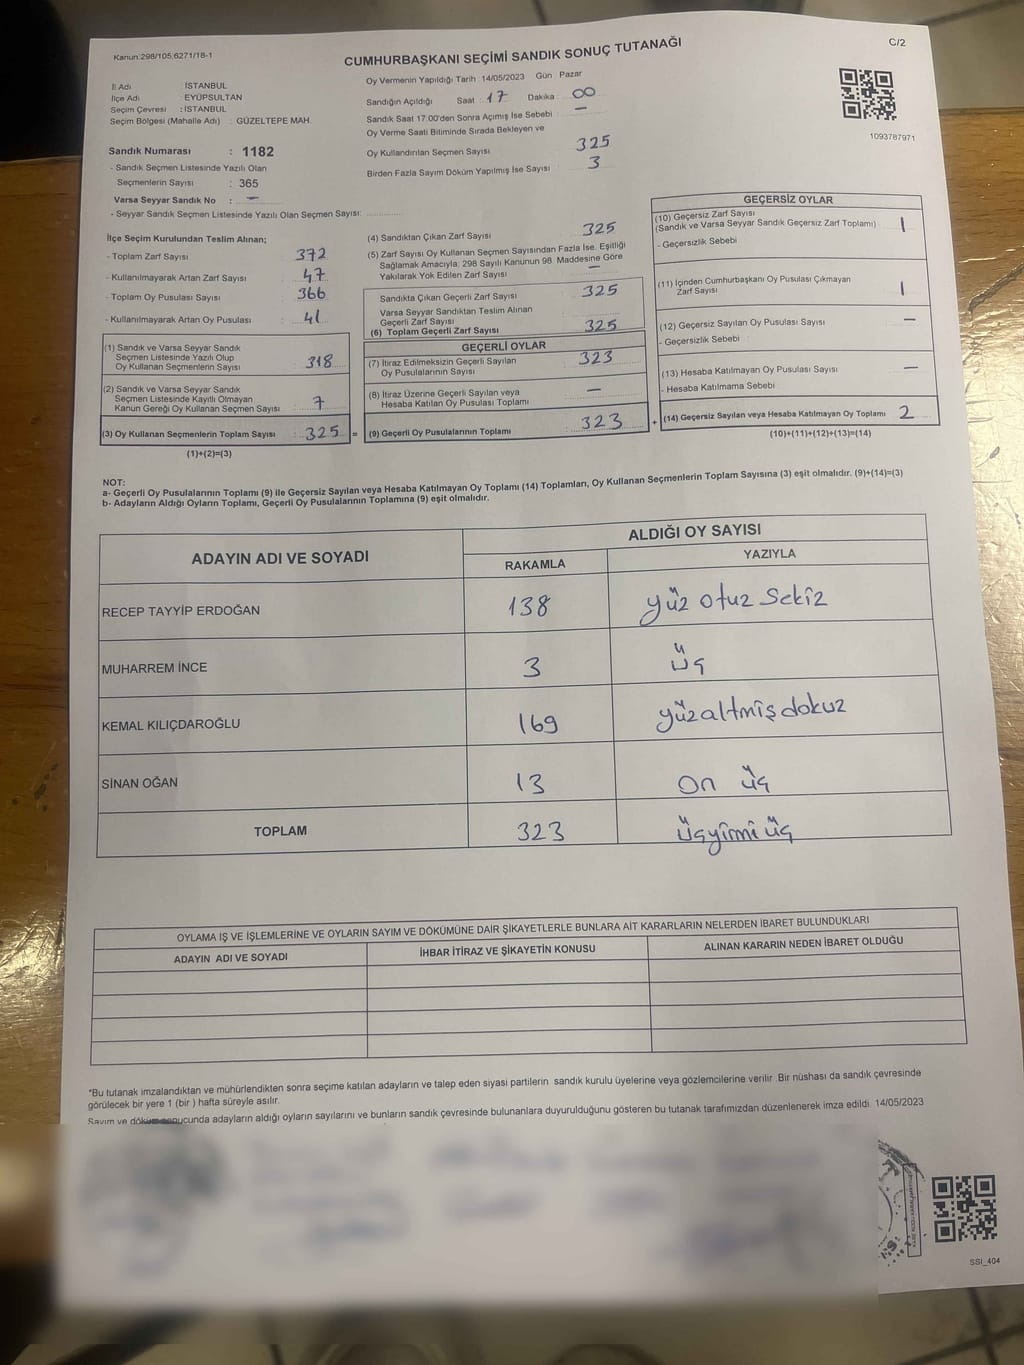 Kanun:298/105,6271/18-1
CUMHURBAŞKANI SEÇİMİ SANDIK SONUÇ TUTANAĞI
C/2
İl Adı İSTANBUL
İlçe Adı EYÜPSULTAN
Seçim Çevresi : İSTANBUL
Seçim Bölgesi (Mahalle Adı) : GÜZELTEPE MAH.
Sandık Numarası : 1182
- Sandık Seçmen Listesinde Yazılı Olan
Seçmenlerin Sayısı : 365
Varsa Seyyar Sandık No : —
- Seyyar Sandık Seçmen Listesinde Yazılı Olan Seçmen Sayısı:
Oy Vermenin Yapıldığı Tarih : 14/05/2023 Gün : Pazar
Sandığın Açıldığı Saat : 17 Dakika : 00
Sandık Saat 17.00'den Sonra Açımış İse Sebebi : —
Oy Verme Saati Bitiminde Sırada Bekleyen ve
Oy Kullandırılan Seçmen Sayısı 325
Birden Fazla Sayım Döküm Yapılmış İse Sayısı : 3
1093787971
İlçe Seçim Kurulundan Teslim Alınan;
- Toplam Zarf Sayısı : 372
- Kullanılmayarak Artan Zarf Sayısı : 47
- Toplam Oy Pusulası Sayısı : 366
- Kullanılmayarak Artan Oy Pusulası : 41
(1) Sandık ve Varsa Seyyar Sandık
Seçmen Listesinde Yazılı Olup
Oy Kullanan Seçmenlerin Sayısı : 318
(2) Sandık ve Varsa Seyyar Sandık
Seçmen Listesinde Kayıtlı Olmayan
Kanun Gereği Oy Kullanan Seçmen Sayısı : 7
(3) Oy Kullanan Seçmenlerin Toplam Sayısı : 325 =
(1)+(2)=(3)
(4) Sandıktan Çıkan Zarf Sayısı : 325
(5) Zarf Sayısı Oy Kullanan Seçmen Sayısından Fazla İse, Eşitliği
Sağlamak Amacıyla; 298 Sayılı Kanunun 98. Maddesine Göre
Yakılarak Yok Edilen Zarf Sayısı : —
Sandıkta Çıkan Geçerli Zarf Sayısı : 325
Varsa Seyyar Sandıktan Teslim Alınan
Geçerli Zarf Sayısı
(6) Toplam Geçerli Zarf Sayısı : 325
GEÇERLİ OYLAR
(7) İtiraz Edilmeksizin Geçerli Sayılan
Oy Pusulalarının Sayısı : 323
(8) İtiraz Üzerine Geçerli Sayılan veya
Hesaba Katılan Oy Pusulası Toplamı : —
(9) Geçerli Oy Pusulalarının Toplamı : 323 +
GEÇERSİZ OYLAR
(10) Geçersiz Zarf Sayısı
(Sandık ve Varsa Seyyar Sandık Geçersiz Zarf Toplamı) : 1
- Geçersizlik Sebebi
(11) İçinden Cumhurbaşkanı Oy Pusulası Çıkmayan
Zarf Sayısı : 1
(12) Geçersiz Sayılan Oy Pusulası Sayısı : —
- Geçersizlik Sebebi :
(13) Hesaba Katılmayan Oy Pusulası Sayısı : —
- Hesaba Katılmama Sebebi :
(14) Geçersiz Sayılan veya Hesaba Katılmayan Oy Toplamı : 2
(10)+(11)+(12)+(13)=(14)
NOT:
a- Geçerli Oy Pusulalarının Toplamı (9) ile Geçersiz Sayılan veya Hesaba Katılmayan Oy Toplamı (14) Toplamları, Oy Kullanan Seçmenlerin Toplam Sayısına (3) eşit olmalıdır. (9)+(14)=(3)
b- Adayların Aldığı Oyların Toplamı, Geçerli Oy Pusulalarının Toplamına (9) eşit olmalıdır.
ADAYIN ADI VE SOYADI
ALDIĞI OY SAYISI
RAKAMLA YAZIYLA
RECEP TAYYİP ERDOĞAN 138 yüz otuz sekiz
MUHARREM İNCE 3 üç
KEMAL KILIÇDAROĞLU 169 yüzaltmış dokuz
SİNAN OĞAN 13 On üç
TOPLAM 323 üçyirmi üç
OYLAMA İŞ VE İŞLEMLERİNE VE OYLARIN SAYIM VE DÖKÜMÜNE DAİR ŞİKAYETLERLE BUNLARA AİT KARARLARIN NELERDEN İBARET BULUNDUKLARI
ADAYIN ADI VE SOYADI İHBAR İTİRAZ VE ŞİKAYETİN KONUSU ALINAN KARARIN NEDEN İBARET OLDUĞU
*Bu tutanak imzalandıktan ve mühürlendikten sonra seçime katılan adayların ve talep eden siyasi partilerin sandık kurulu üyelerine veya gözlemcilerine verilir. Bir nüshası da sandık çevresinde
görülecek bir yere 1 (bir ) hafta süreyle asılır.
Sayım ve döküm sonucunda adayların aldığı oyların sayılarını ve bunların sandık çevresinde bulunanlara duyurulduğunu gösteren bu tutanak tarafımızdan düzenlenerek imza edildi. 14/05/2023
SSİ_404